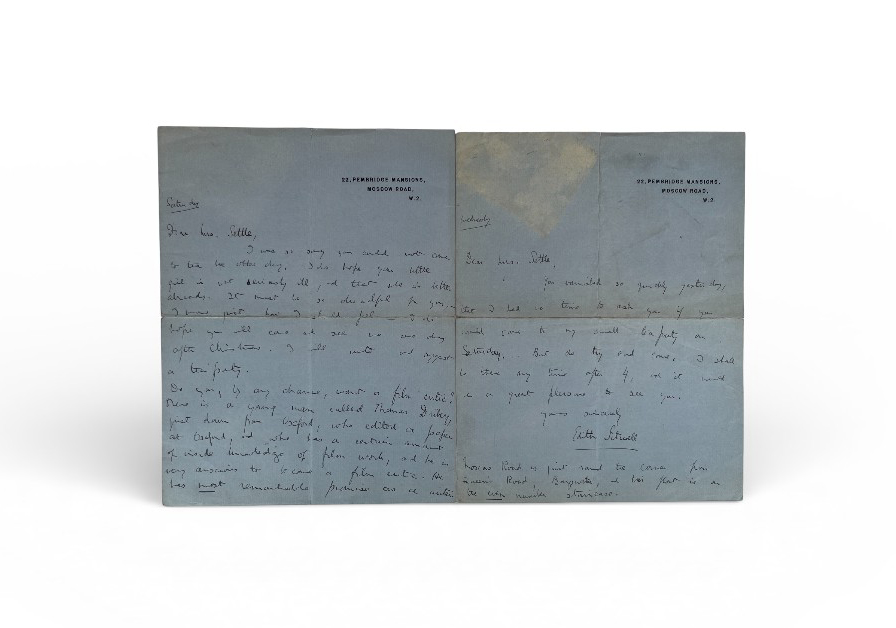 22, PEMBRIDGE MANSIONS,
MOSCOW ROAD,
W.2.
Saturday
Dear Mrs. Settle,
I was so sorry you could not come
to tea the other day. I do hope your little
girl is not seriously ill, and that she is better
already. It must be so dreadful for you,
I know just how I should feel — I do
hope you will come and see me one day
after Christmas. I will write and suggest
a tea party.
Do you, by any chance, want a film critic?
There is a young man called Thomas Driberg,
just down from Oxford, who edited a paper
at Oxford, and who has a certain amount
of inside knowledge of film work, and he is
very anxious to become a film critic. He
has most remarkable promise as a writer
22, PEMBRIDGE MANSIONS,
MOSCOW ROAD,
W.2.
Wednesday
Dear Mrs. Settle,
You vanished so quickly yesterday,
that I had no time to ask you if you
would come to my small tea party on
Saturday. But do try and come. I shall
be there any time after 4, and it would
be a great pleasure to see you.
Yours sincerely
Edith Sitwell
Moscow Road is just round the corner from
Queen's Road, Bayswater, and this flat is on
the even number staircase.